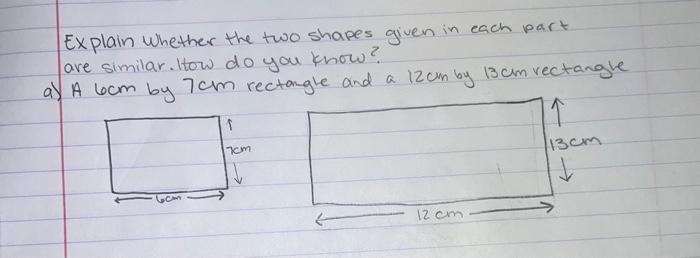 Explain whether the two shapes given in each part
are similar. How do you know?
a) A 6cm by 7cm rectangle and a 12cm by 13cm rectangle
7cm
13cm
6cm
12 cm